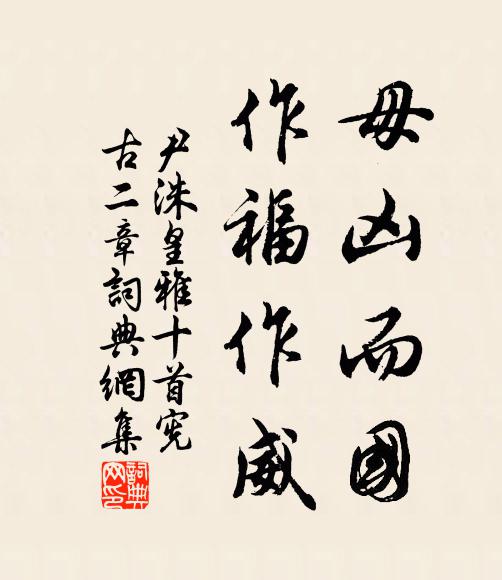 毋凶而國
作福作威
尹洙皇雅十首宪
古二章詞典網集
詞典网印